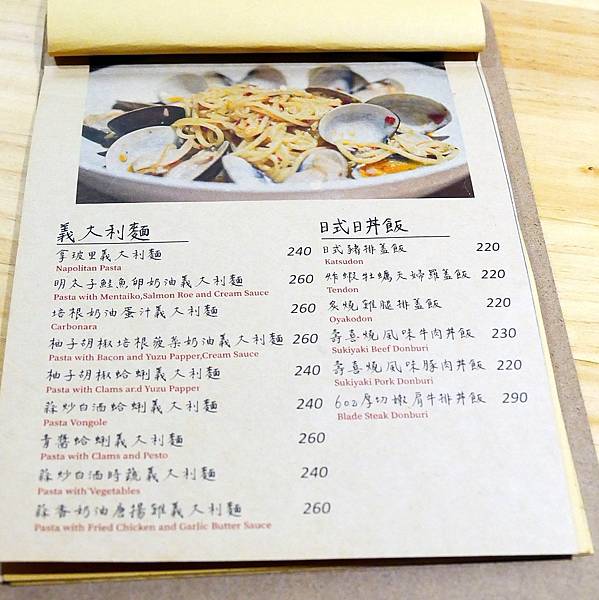 義大利麵
拿坡里義大利麵 240
Napolitan Pasta
明太子鮭魚卵奶油義大利麵 260
Pasta with Mentaiko,Salmon Roe and Cream Sauce
培根奶油蛋汁義大利麵 260
Carbonara
柚子胡椒培根菠菜奶油義大利麵 260
Pasta with Bacon and Yuzu Papper,Cream Sauce
柚子胡椒蛤蜊義大利麵 240
Pasta with Clams ar.d Yuzu Papper
蒜炒白酒蛤蜊義大利麵 240
Pasta Vongole
青醬蛤蜊義大利麵 260
Pasta with Clams and Pesto
蒜炒白酒時蔬義大利麵 240
Pasta with Vegetables
蒜香奶油唐揚雞義大利麵 260
Pasta with Fried Chicken and Garlic Butter Sauce
日式日丼飯
日式豬排蓋飯 220
Katsudon
炸蝦牡蠣天婦羅蓋飯 220
Tendon
炙燒雞腿排蓋飯 220
Oyakodon
壽喜燒風味牛肉丼飯 230
Sukiyaki Beef Donburi
壽喜燒風味豚肉丼飯 220
Sukiyaki Pork Donburi
6oz厚切嫩肩牛排丼飯 290
Blade Steak Donburi